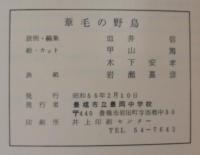 葦毛の野鳥
説明・編集 垣井 信
絵・カット 甲山 篤
木下安孝
表紙 岩瀬嘉彦
発行 昭和56年2月10日
発行者 豊橋市立豊岡中学校
〒440 豊橋市岩田町字西郷中30
印刷所 井上印刷センター
TEL 54-7642